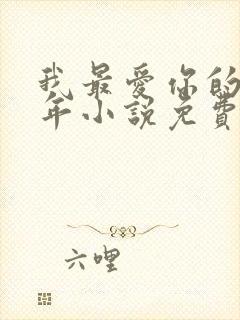 我最爱你的
年小说免费
六哩